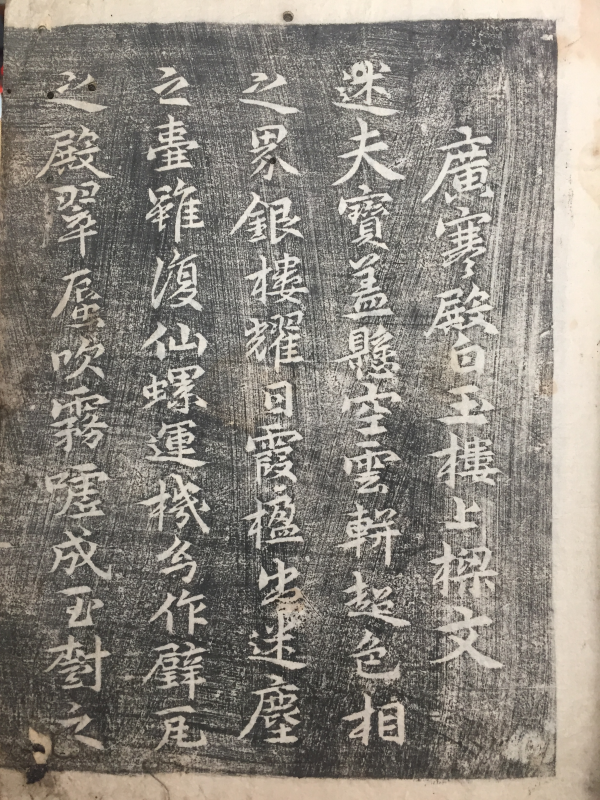 廣寒殿白玉樓上樑文
述夫寶盖懸空雲軿超色相
之界銀樓耀日霞楹出迷塵
之壺雖復仙螺運機幻作璧瓦
之殿翠蜃吹霧噓成玉樹之